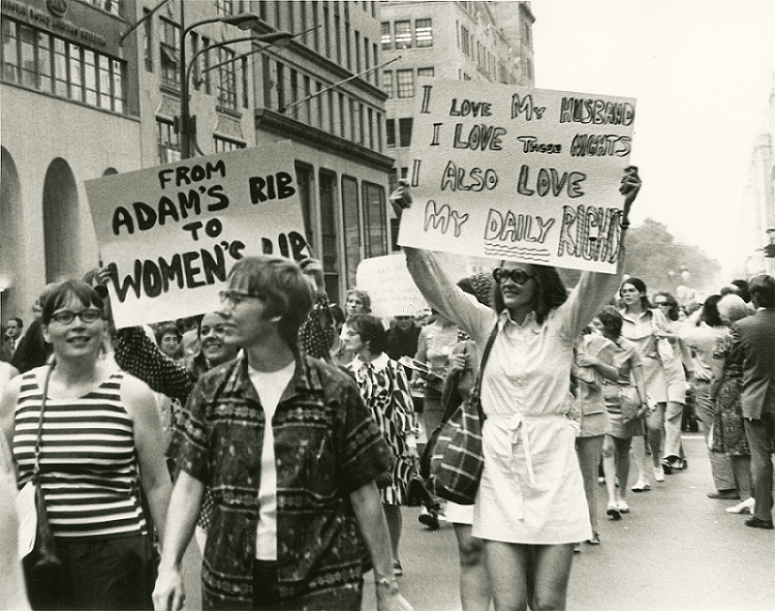 FROM
ADAM'S RIB
TO
WOMEN'S LIB
I LOVE MY HUSBAND
I LOVE THOSE NIGHTS
I ALSO LOVE
MY DAILY RIGHTS